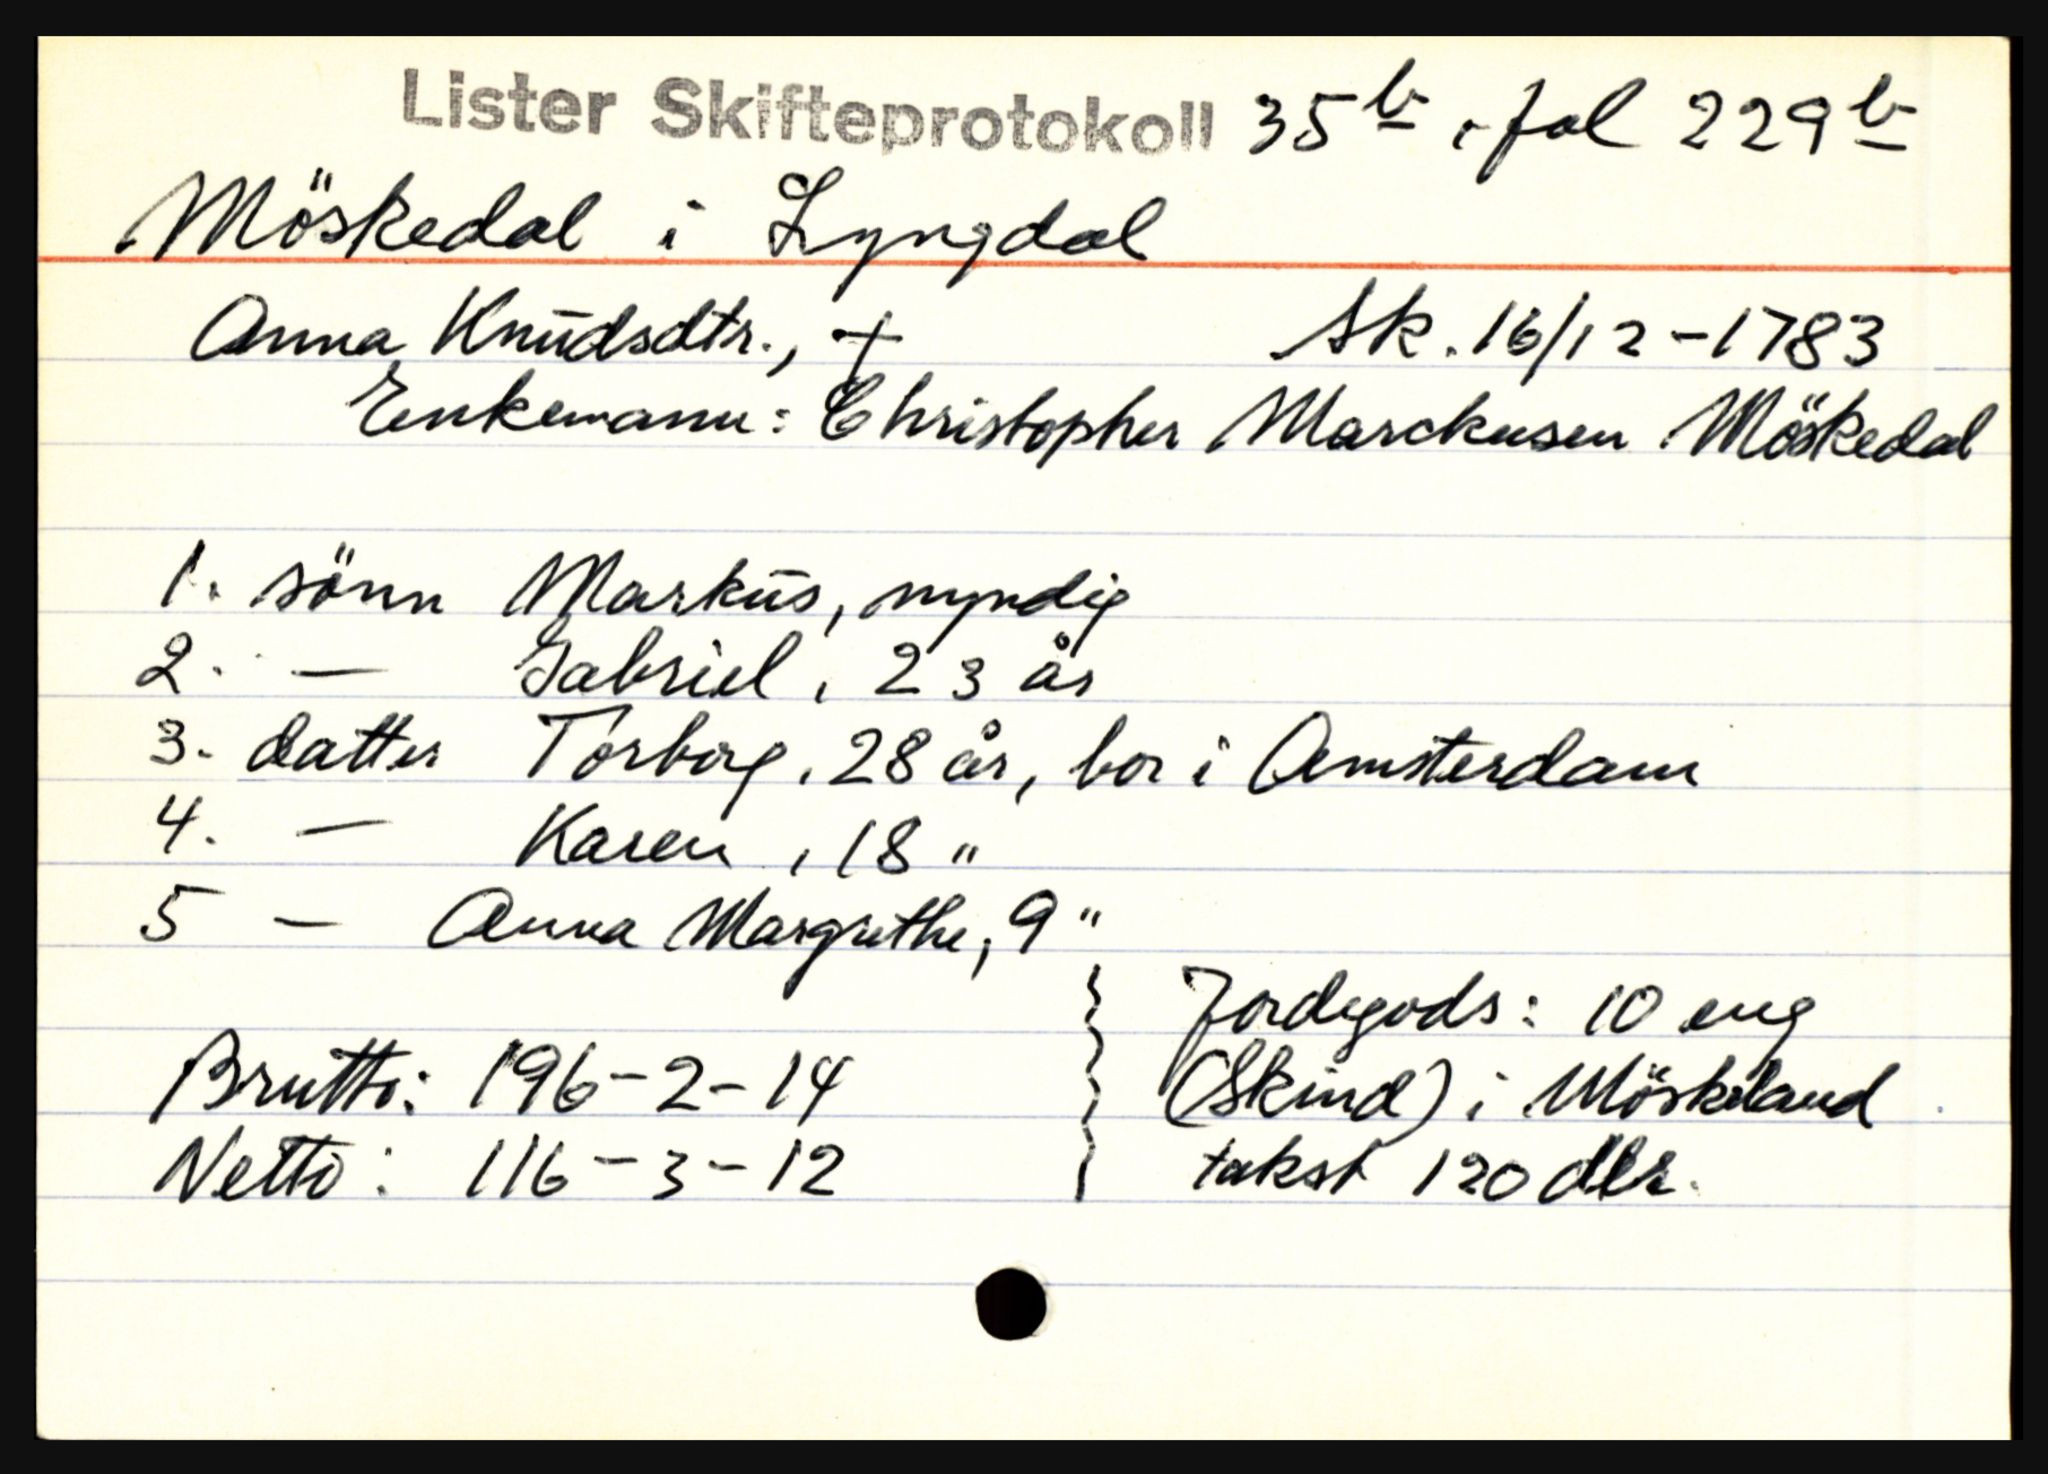 Lister Skifteprotokoll 35b, fol 229b
Möskedal i Lyngdal
Anna Knudsdtr., † Sk. 16/12-1783
Enkemann: Christopher Marckusen Möskedal
1. sönn Markus, myndig
2. — Gabriel, 23 år
3. datter Torborg, 28 år, bor i Amsterdam
4. — Karen, 18 "
5 — Anna Margrethe, 9 "
Jordegods: 10 eng
Brutto: 196-2-14 (Skind) i Möskeland
Netto: 116-3-12 takst 120 dlr.